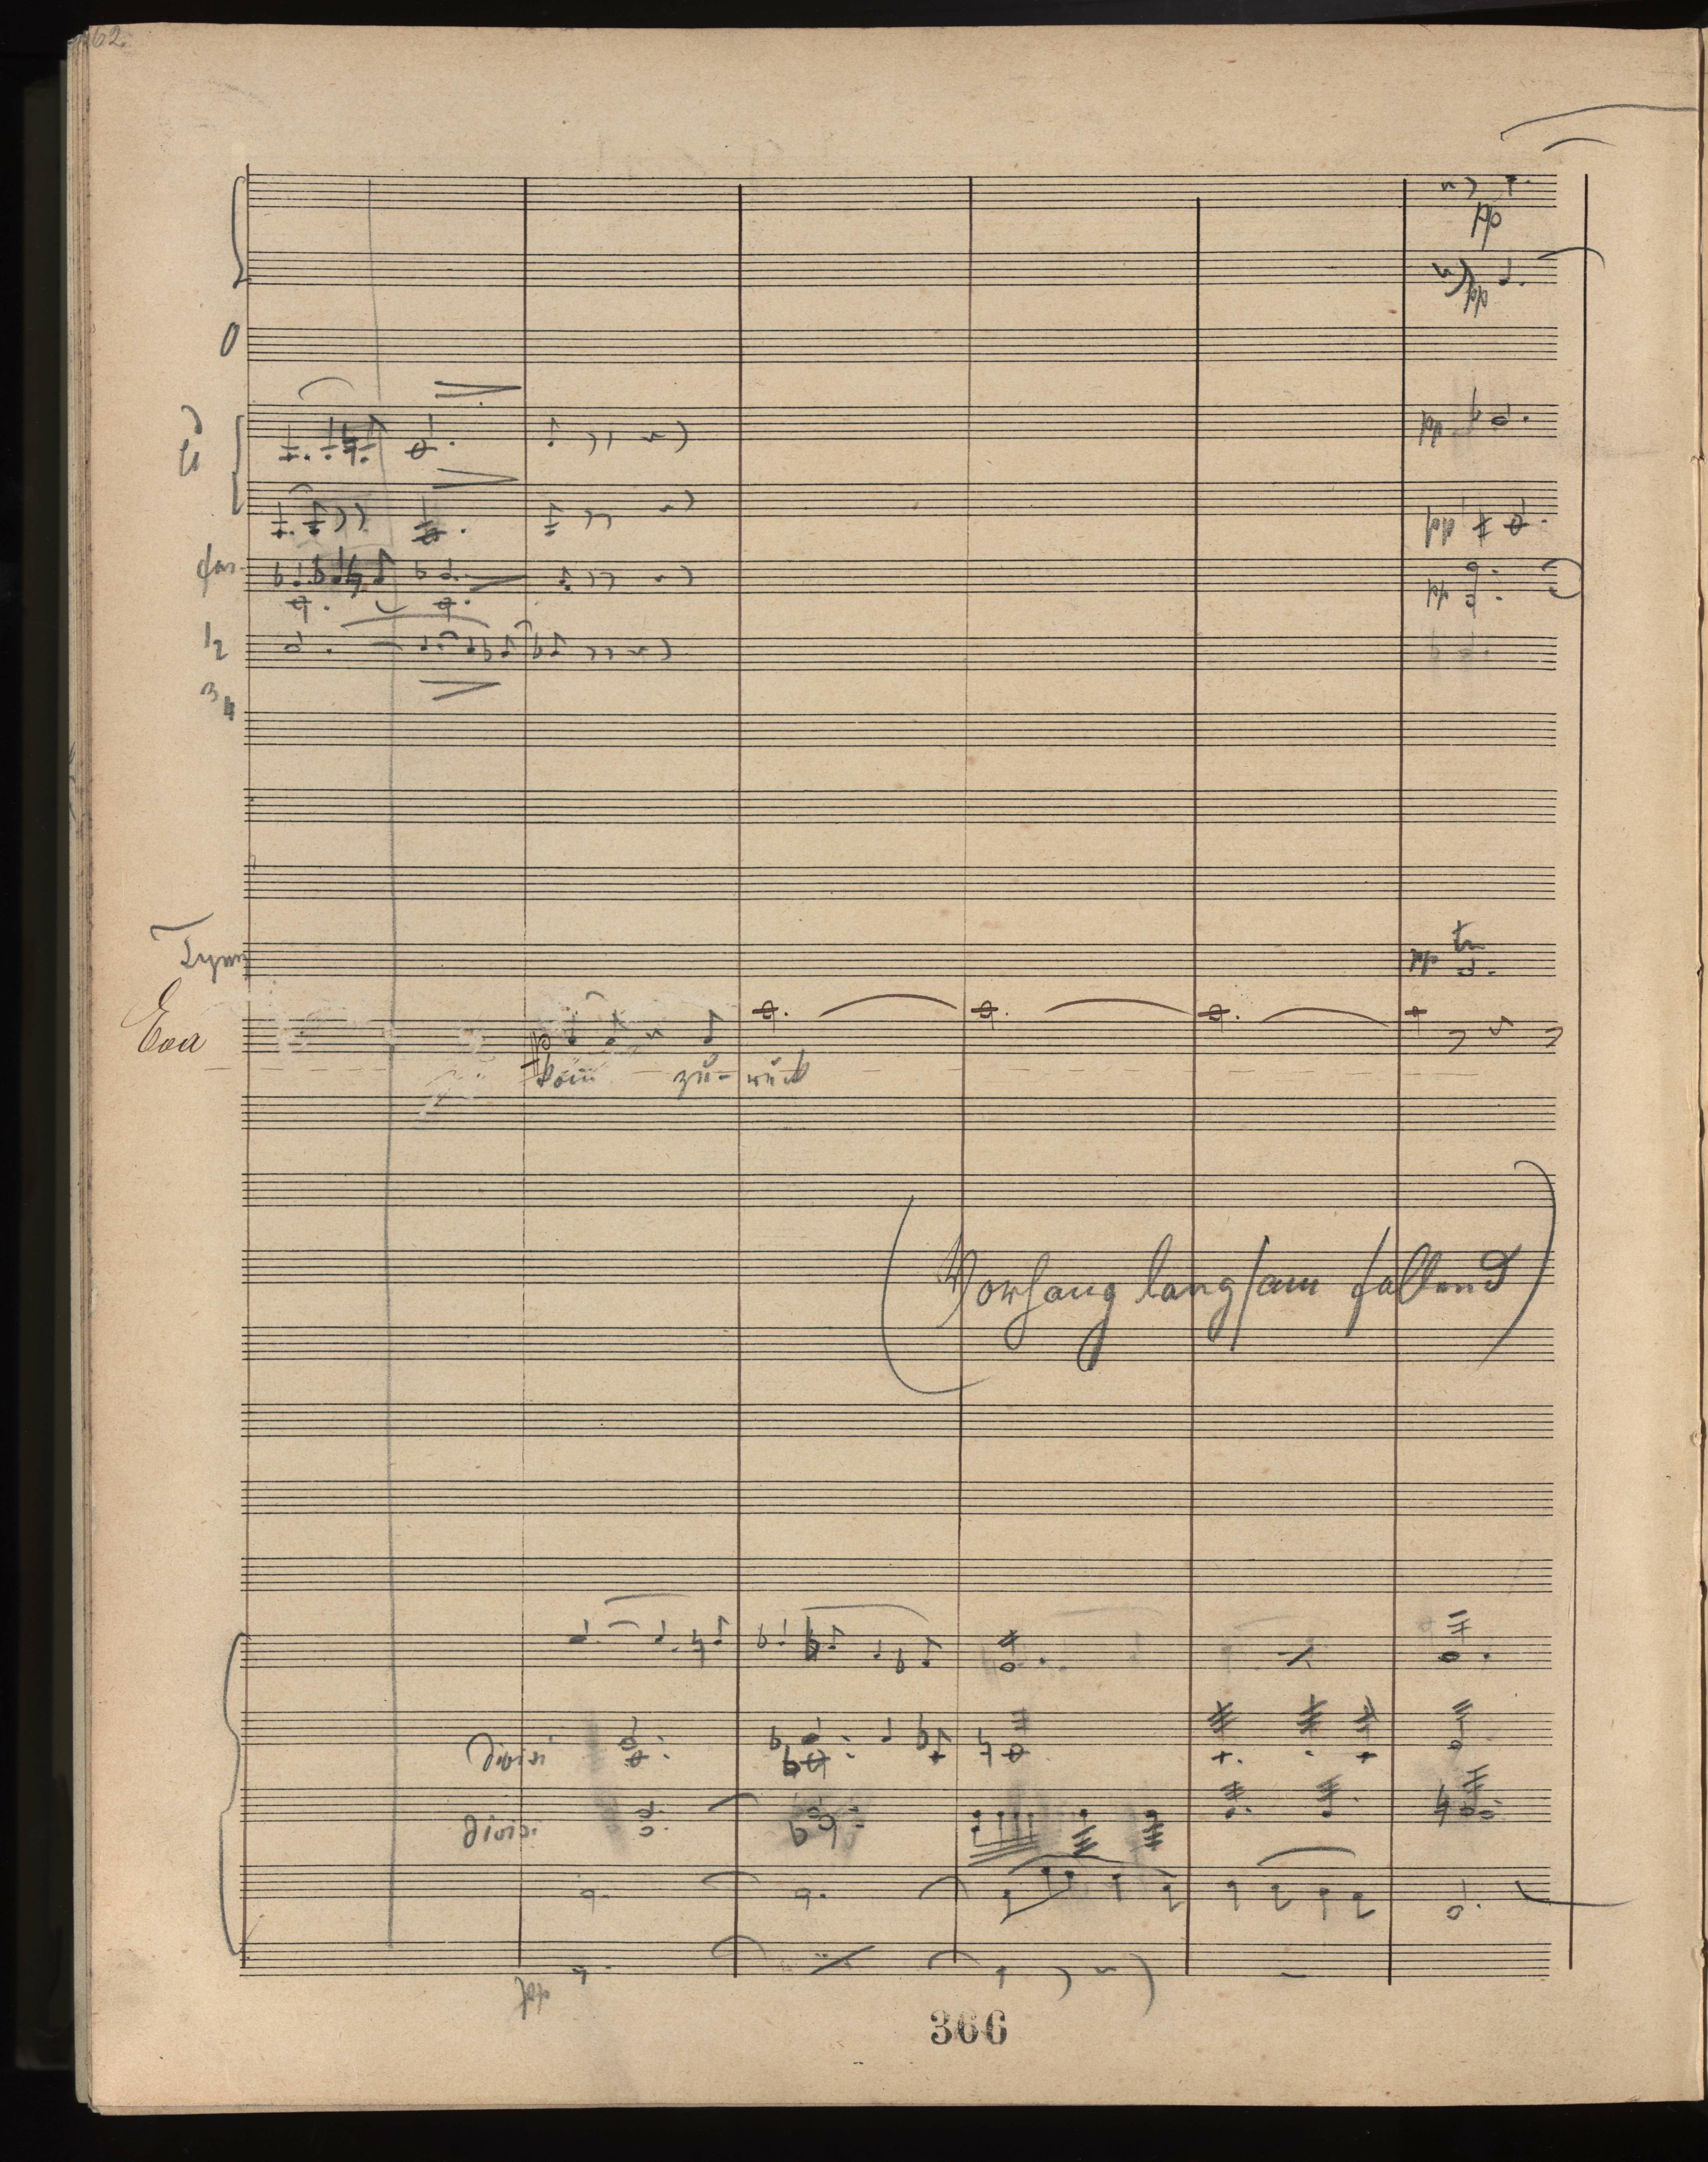 62.
pp
pp
O
pp
pp
Fag.
pp
1/2
3/4
Tymp
pp tr
Eva
p
kom̄ zu-rück
(Vorhang langsam fallend)
divisi
divisi
pp
366